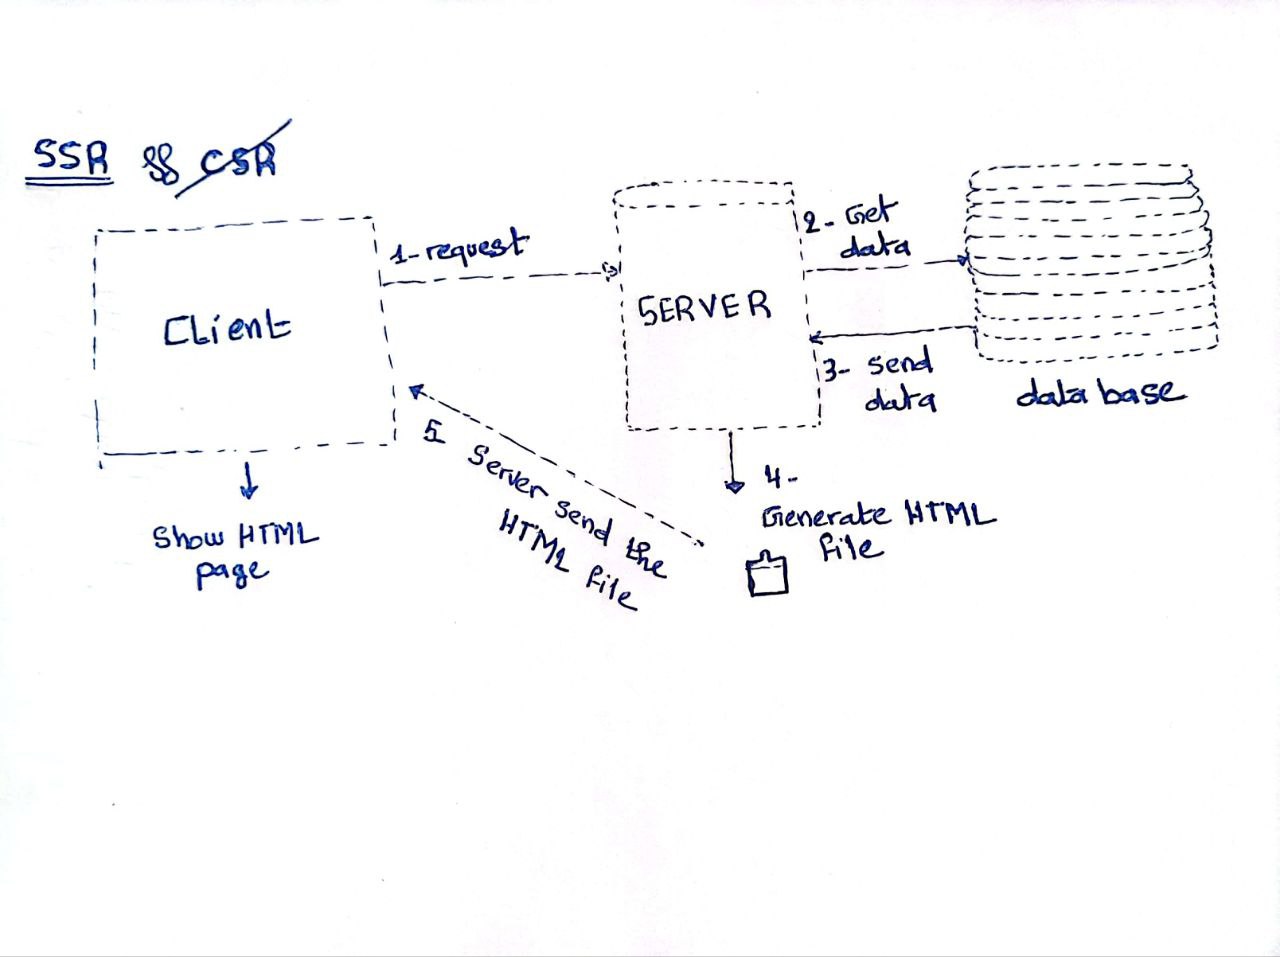 SSR && CSR
CLient
1-request
SERVER
2- Get
data
3- send
data
data base
4-
Generate HTML
file
5
Server send the
HTML file
Show HTML
page